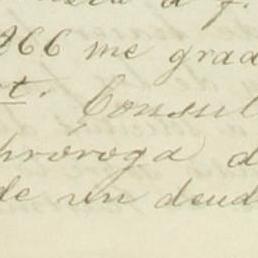 866 me grad
t. Consul
próroga d
de un deud